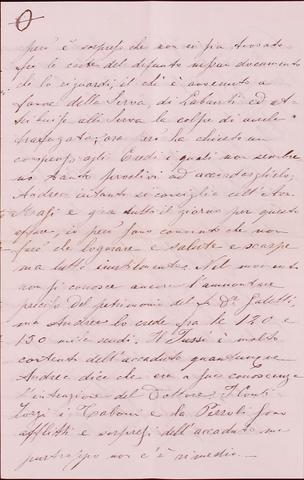 però è sorpreso che non si sia trovato
fra le carte del defunto nessun documento
che lo riguardi, il chè è avvenuto a
favore della Serva di Labanti ed at-
tribuisce alla Serva la colpa di averle
trafugate, ora però ha chiesto un
compenso agli Eredi i quali non sembra-
no tanto proclivi ad accordarglielo,
Andrea intanto si consiglia coll'
e gira tutto il giorno per questo
affare, io però sono convinto che non
farà che logorare e salute e scarpe
ma tutto inutilmente. Nel momento
non si conosce ancora l'ammontare
preciso del patrimonio del Dr. Galetti,
ma Andrea lo crede fra le 120 e
130 mila scudi. Il è molto
contento dell'accaduto quantunque
Andrea dice che era a sua conoscenza
l'intenzione del Dottore, I Conti
Zorzi i e la sono
afflitti e sorpresi dell'accaduto ma
purtroppo non c'è rimedio. —